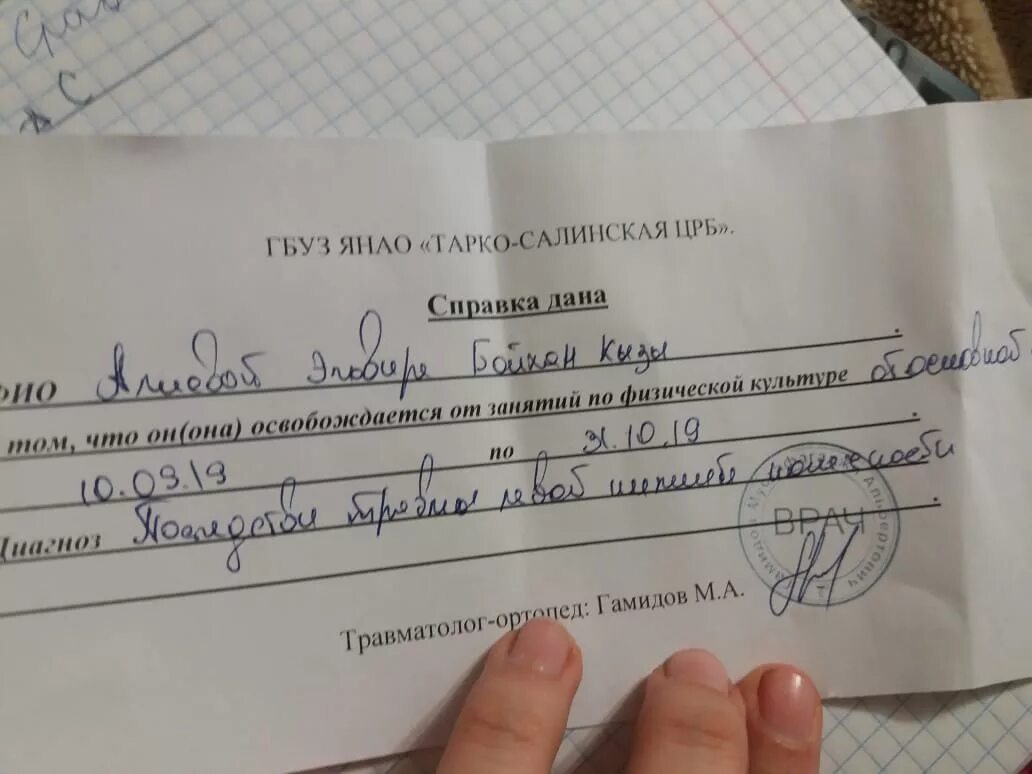 С
ГБУЗ ЯНАО «ТАРКО-САЛИНСКАЯ ЦРБ».
Справка дана
ФИО Алиевой Эльвире Бойхан кызы.
том, что он(она) освобождается от занятий по физической культуре от основной.
10.09.19 по 31.10.19
Диагноз Последствия травмы левой нижней конечности.
ВРАЧ
Альбертович
Травматолог-ортопед: Гамидов М.А.